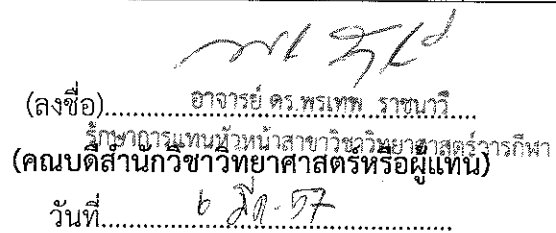 (ลงชื่อ)........................................................
อาจารย์ ดร.พรเทพ ราชนาวี
รักษาการแทนหัวหน้าสาขาวิชาวิทยาศาสตร์การกีฬา
(คณบดีสำนักวิชาวิทยาศาสตร์หรือผู้แทน)
วันที่........................................................